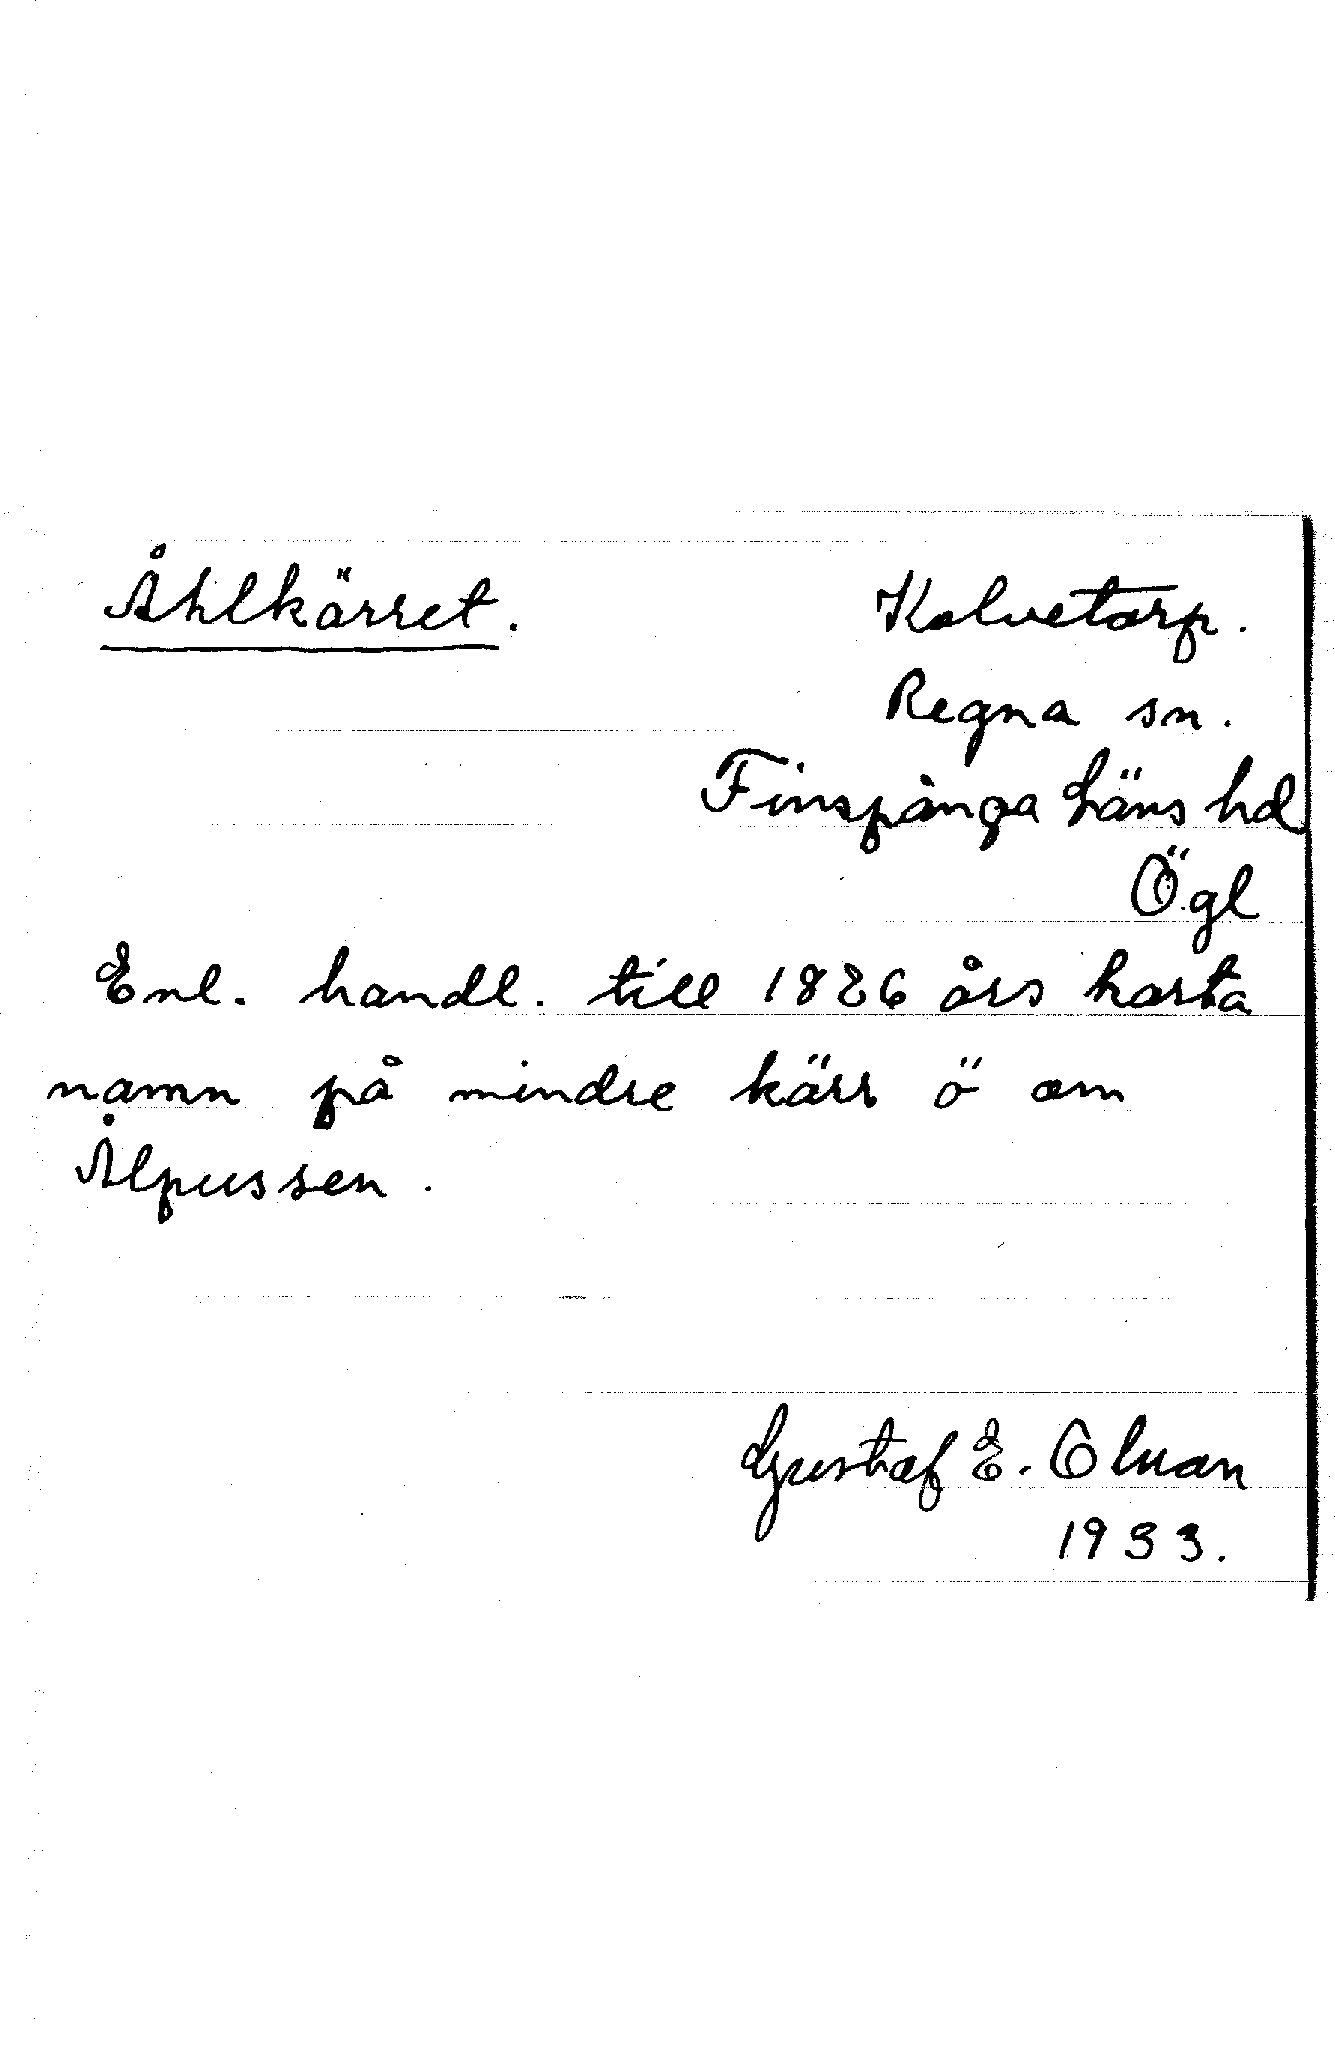 Åhlkärret.
Kolvetorp.
Regna sn.
Finspånga Läns hd
Ögl
Enl. handl. till 1826 års karta
namn på mindre kärr ö om
Ålpussen.
Gustaf E. Olman
1933.